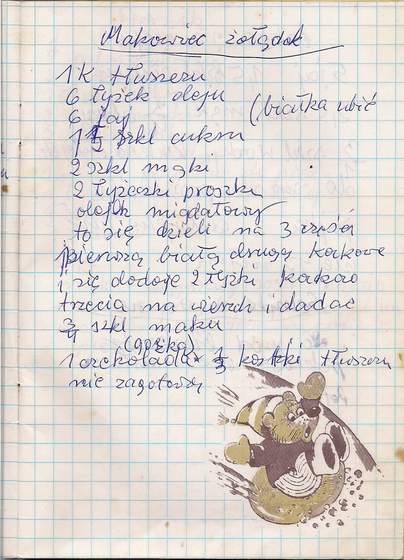 Makowiec żołądek
1 K tłuszczu
6 łyżek oleju
6 jaj (białka ubić
1 1/2 szkl cukru
2 szkl mąki
2 łyżeczki proszku
olejk migdałowy
to się dzieli na 3 części
pierwszą białą drugą kakowe
i się dodaje 2 łyżki kakao
trzecia na wierzch i dadać
3/4 szkl maku
(gorzka)
1 czekolada 1/3 kostki tłuszczu
nie zagotową